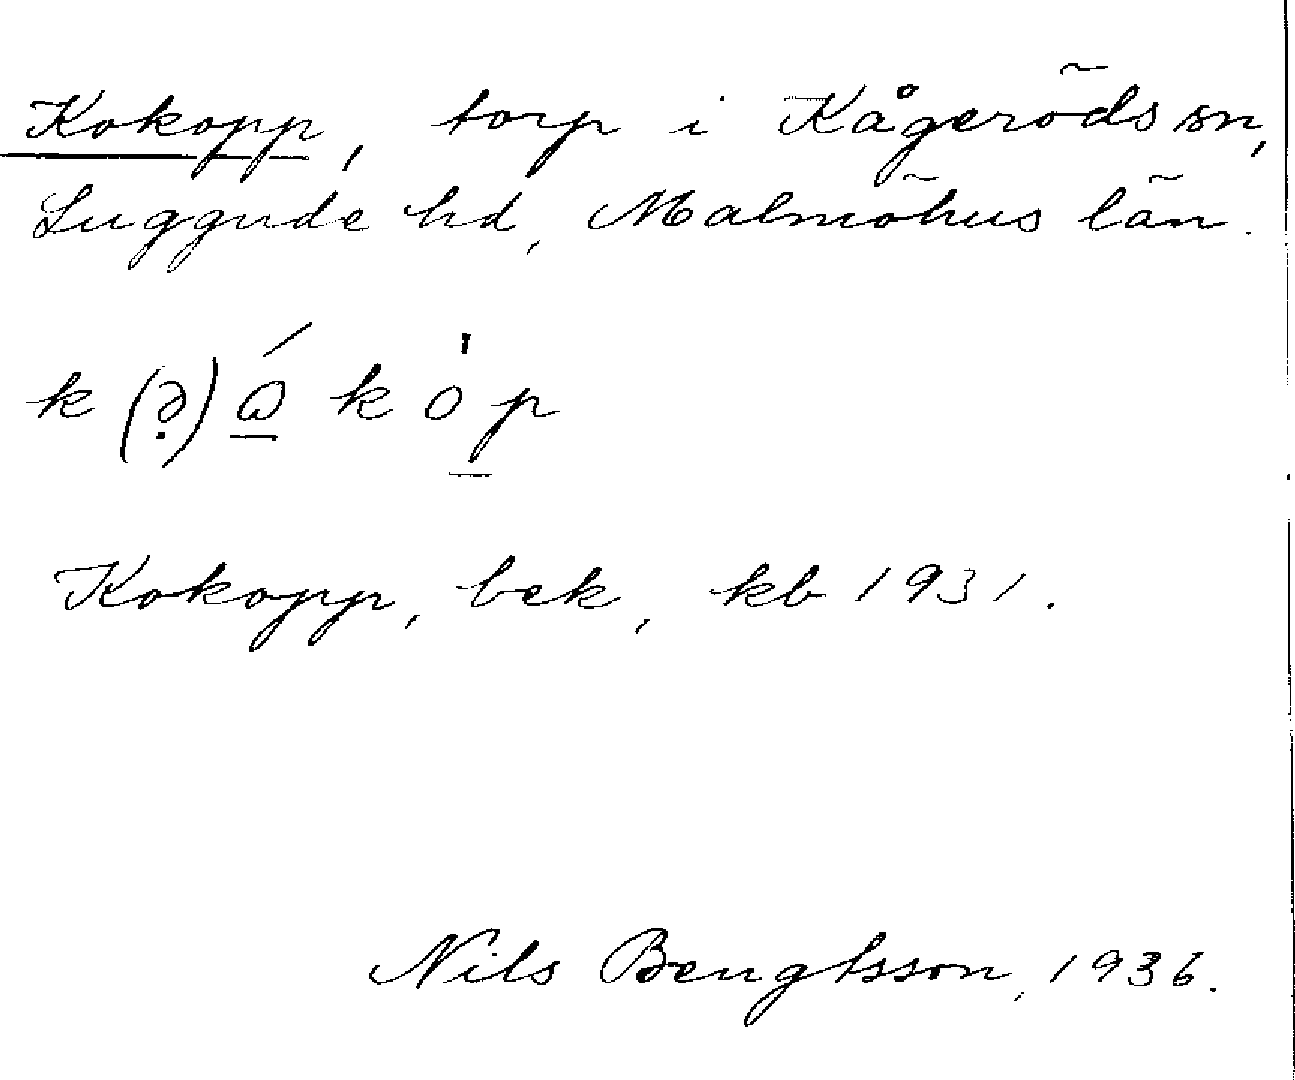 Kokopp, torp i Kågeröds sn,
Luggude hd, Malmöhus län.
k(ə̣)ώ̲ k o̍ p̲
Kokopp, bek, kb 1931.
Nils Bengtsson, 1936.